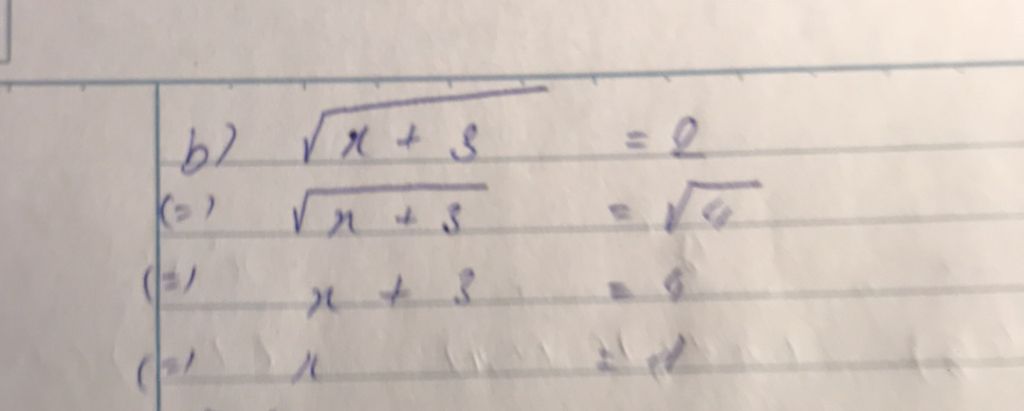 b) √(x + 3) = 2
(=) √(x + 3) = √4
(=) x + 3 = 4
(=) x = 1